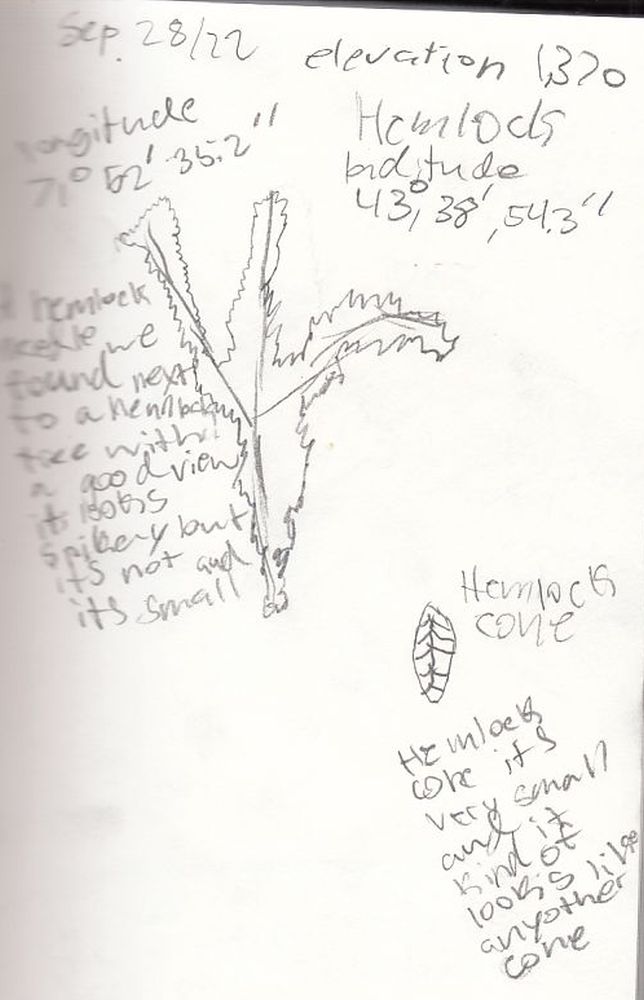 Sep. 28/22
elevation 1,370
longitude
71° 52' 35.2"
Hemlock
latitude
43°, 38', 54.3"
A hemlock
needle we
found next
to a hemlock
tree with
a good view
it looks
spikey but
it's not and
its small
Hemlock
cone
Hemlock
cone its
very small
and it
kind of
looks like
anyother
cone